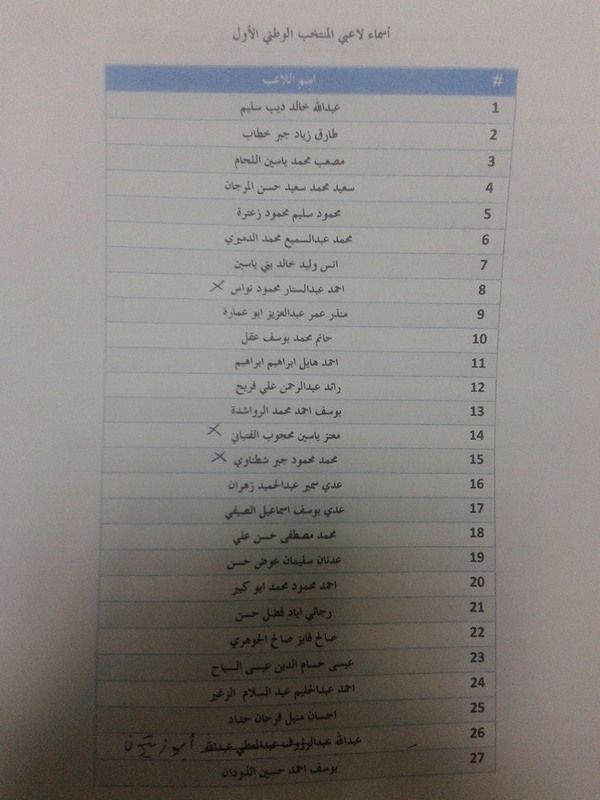 أسماء لاعبي المنتخب الوطني الأول
# اسم اللاعب
1 عبدالله خالد ديب سليم
2 طارق زياد جبر خطاب
3 مصعب محمد ياسين اللحام
4 سعيد محمد سعيد حسن المرجان
5 محمود سليم محمود زعترة
6 محمد عبدالسميع محمد الدميري
7 انس وليد خالد بني ياسين
8 احمد عبدالستار محمود نواس X
9 منذر عمر عبدالعزيز ابو عمارة
10 حاتم محمد يوسف عقل
11 احمد هايل ابراهيم ابراهيم
12 رائد عبدالرحمن علي فريح
13 يوسف احمد محمد الرواشدة
14 معتز ياسين محجوب الفتياني X
15 محمد محمود جبر شطناوي X
16 عدي سمير عبدالحميد زهران
17 عدي يوسف اسماعيل الصيفي
18 محمد مصطفى حسن علي
19 عدنان سليمان عوض حسن
20 احمد محمود محمد ابو كبير
21 رجائي اياد فضل حسن
22 صالح فايز صالح الجوهري
23 عيسى حسام الدين عيسى السباح
24 احمد عبدالحليم عبد السلام الزغير
25 احسان منيل فرحان حداد
26 عبدالله عبدالرؤوف عبدالمعطي عبدالله أبو زيتون
27 يوسف احمد حسين الذودان